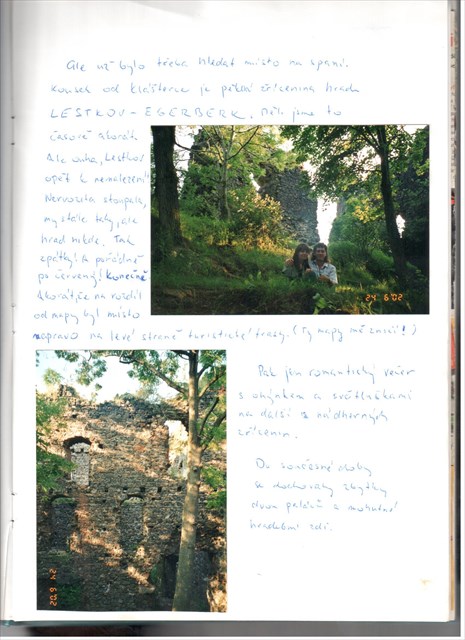 Ale už bylo třeba hledat místo na spaní.
Kousek od Klášterce je pěkná zřícenina hradu
LESTKOV - EGERBERK. Měli jsme to
časově akorát.
Ale ouha, Lestkov
opět k nenalezení!
Nervozita stoupala,
my stále taky, ale
hrad nikde. Tak
zpátky! A pořádně
po červený! Konečně
Akorát, že na rozdíl
od mapy byl místo
napravo na levé straně turistické trasy. (Ty mapy mě zničí!)
24 6 02
Pak jen romantický večer
s ohýnkem a světluškami
na další z nádherných
zřícenin.
Do současné doby
se dochovaly zbytky
dvou paláců a mohutné
hradební zdi.
24 6 02